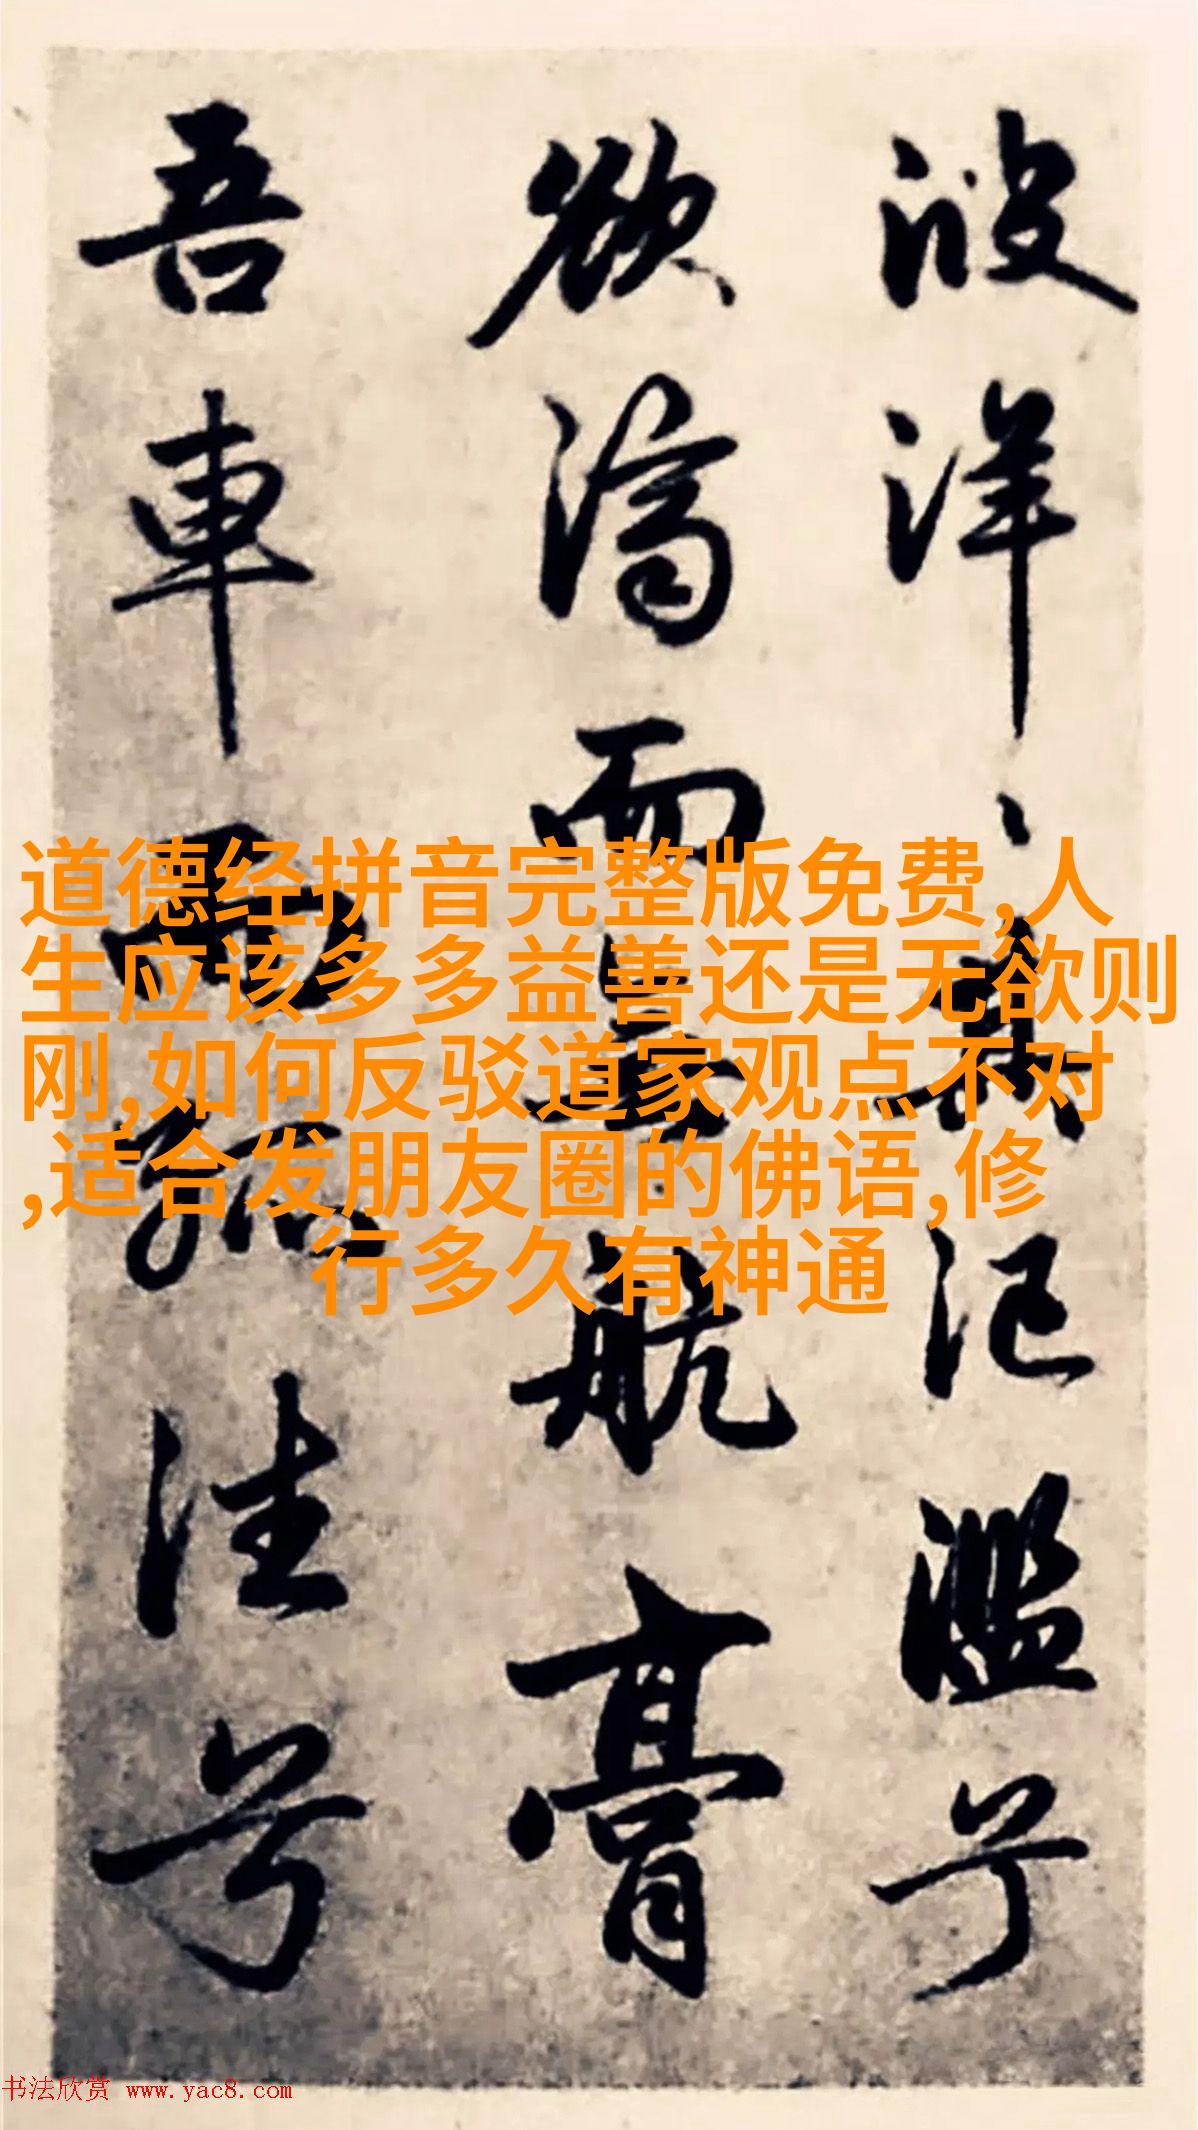 波洋〻其汜濫兮
欲濟而無航膏
吾車而
注兮
道德经拼音完整版免费,人
生应该多多益善还是无欲则
刚,如何反驳道家观点不对
,适合发朋友圈的佛语,修
行多久有神通
书法欣赏 www.yac8.com